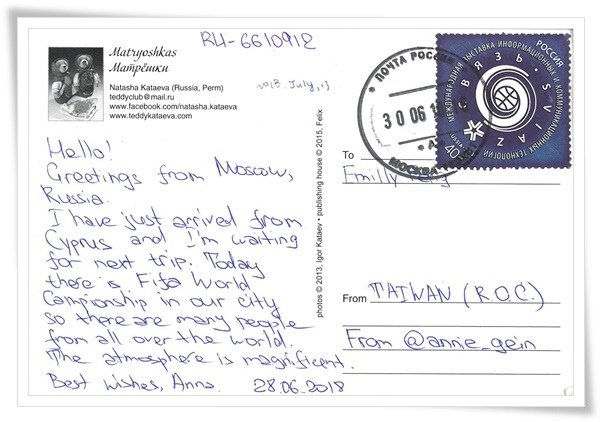 RU-6610912
Matryoshkas
Матрёшки
Natasha Kataeva (Russia, Perm)
teddyclub@mail.ru
www.facebook.com/natasha.kataeva
www.teddykataeva.com
2018. July, 13
Hello!
Greetings from Moscow,
Russia.
I have just arrived from
Cyprus and I'm waiting
for next trip. Today
there is Fifa World
Campionship in our city
so there are many people
from all over the world.
The atmosphere is magnificent.
Best wishes, Anna. 28.06.2018
photos © 2013, Igor Kataev • publishing house © 2015, Felix
ПОЧТА РОССИИ
30 06 18
МОСКВА
РОССИЯ
МЕЖДУНАРОДНАЯ ВЫСТАВКА ИНФОРМАЦИОННЫХ И КОММУНИКАЦИОННЫХ ТЕХНОЛОГИЙ
СВЯЗЬ • SVIAZ
40
To
Emilly
From TAIWAN (R.O.C.)
From @annie_gein